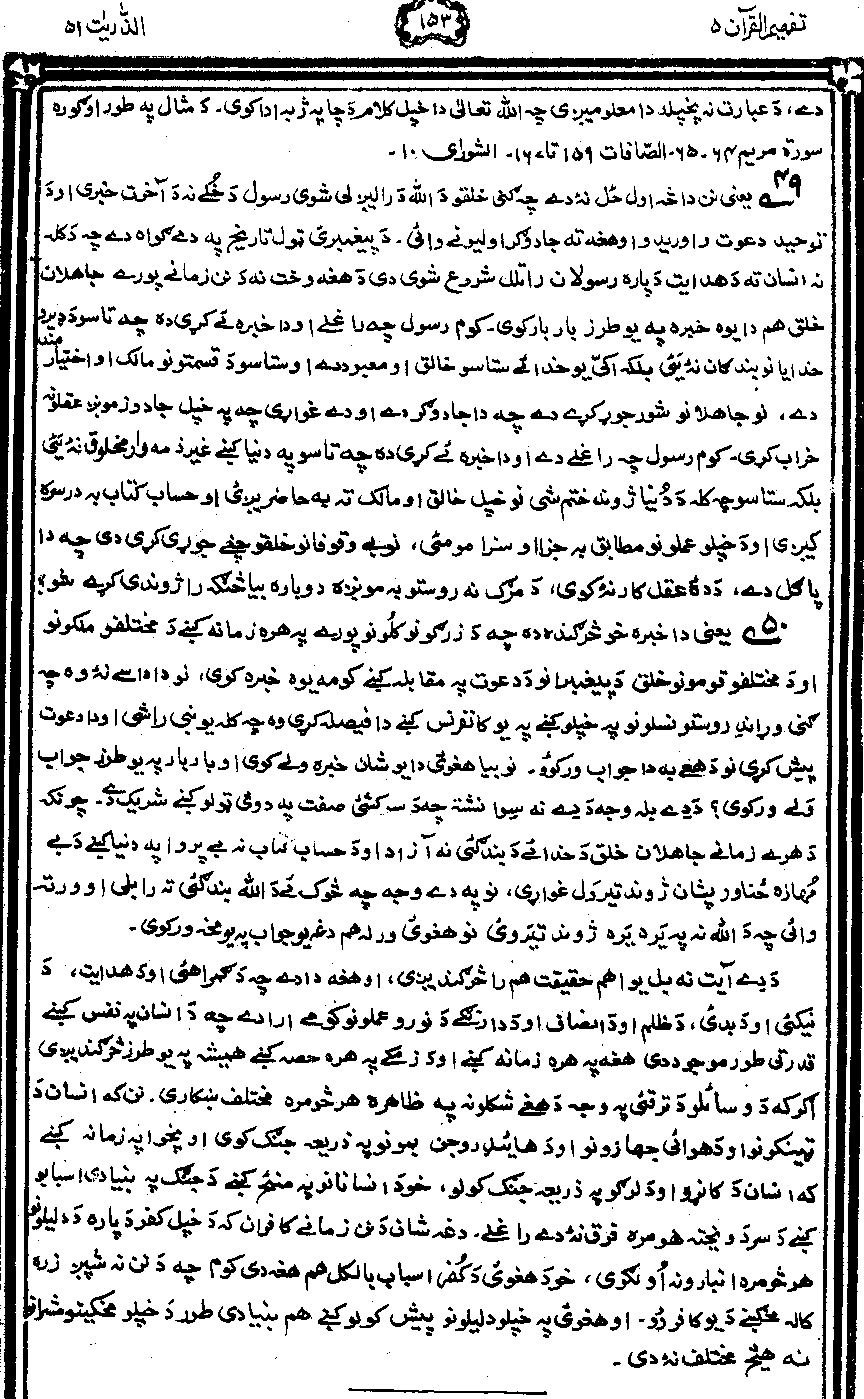 تفہیم القرآن ۵
۱۵۳
الذّٰریٰت ۵۱
دے، دَ عبارت نہ پخپلہ دا معلومیږی چہ اللہ تعالیٰ دا خپل کلام دَ چا پہ ژبہ ادا کوی۔ دَ مثال پہ طور اوګورہ
سورۃ مریم ۶۴۔۶۵۔ الصّافات ۱۵۹ تا ۱۶۷۔ الشورٰی ۱۰۔
۴۹ یعنی نن دا څہ اول ځل نہ دے چہ ګنی خلقو دَ اللہ دَ رالیږلی شوی رسول دَ خُلے نہ دَ آخرت خبری اودَ
توحید دعوت واورید او ھغہ تہ جادوګر اولیونے وائی۔ دَ پیغمبرۍ ټول تاریخ پہ دے ګواہ دے چہ دَ کلہ
نہ انسان تہ دَ ھدایت دَ پارہ رسولان راتلل شروع شوی دی دَ ھغہ وخت نہ دَ نن زمانے پورے جاھلان
خلق ھم دا یوہ خبرہ پہ یو طرز بار بار کوی۔ کوم رسول چہ راغلے او دا خبرہ ئے کړی دہ چہ تاسو دَ ډیرو
خدایانو بندګان نہ یئ بلکہ اکی یو خدائے ستاسو خالق او معبود دے او ستاسو دَ قسمتونو مالک او اختیار مند
دے، نو جاھلانو شور جوړ کړے دے چہ دا جادوګر دے او دے غواړی چہ پہ خپل جادو زمونږہ عقلونہ
خراب کړی۔ کوم رسول چہ راغلے دے او دا خبرہ ئے کړی دہ چہ تاسو پہ دنیا کښے غیر ذمہ وار مخلوق نہ یئ
بلکہ ستاسو چہ کلہ دَ دُنیا ژوند ختم شی نو خپل خالق او مالک تہ بہ حاضریږئ او حساب کتاب بہ درسرہ
کیږی او دَ خپلو عملونو مطابق بہ جزا او سزا مومئ، نو بے وقوفانو خلقو چغے جوړی کړی دی چہ دا
پاګل دے، دَ دۂ عقل کار نہ کوی، دَ مرګ نہ روستو بہ مونږہ دوبارہ بیا څنګہ راژوندی کړے شو؟
۵۰ یعنی دا خبرہ خو څرګندہ دہ چہ دَ زرګونو کلونو پورے پہ ھرہ زمانہ کښے دَ مختلفو ملکونو
او دَ مختلفو قومونو خلق دَ پیغمبرانو دَ دعوت پہ مقابلہ کښے کومہ یوہ خبرہ کوی، نو دا داسے نہ وہ چہ
ګنی وړاندِ روستو نسلونو پہ خپلو کښے پہ یو کانفرنس کښے دا فیصلہ کړی وہ چہ کلہ یو نبی راشی او دا دعوت
پیش کړی نو دَ ھغہ بہ دا جواب ورکوؤ۔ نو بیا ھغوئ دا یو شان خبرہ ولے کوی او بار بار پہ یو طرز جواب
ولے ورکوی؟ دَ دے بلہ وجہ دَ دے نہ سوا نشتہ چہ دَ سرکشئ صفت پہ دوئ ټولو کښے شریک دے۔ چونکہ
دَ ھرے زمانے جاھلان خلق دَ خدائے دَ بندګئی نہ آزاد او دَ حساب کتاب نہ بے پروا پہ دنیا کښے دَ بے
مُہارہ ځناور پشان ژوند تیرول غواړی، نو پہ دے وجہ چہ څوک ئے دَ اللہ بندګئی تہ رابلی او ورتہ
وائی چہ دَ اللہ نہ پہ یَرہ یَرہ ژوند تیروئ نو ھغوئ ورلہ ھم دغہ یو جواب پہ یو مخہ ورکوی۔
دَ دے آیت نہ بل یو اھم حقیقت ھم راڅرګندیږی، او ھغہ دا دے چہ دَ ګمراھئی او دَ ھدایت، دَ
نیکئی او دَ بدئی، دَ ظلم او دَ انصاف او دَ دارنګے دَ نورو عملونو کومے ارادے چہ دَ انسان پہ نفس کښے
قدرتی طور موجود دی ھغہ پہ ھرہ زمانہ کښے او دَ زمکے پہ ھرہ حصہ کښے ھمیشہ پہ یو طرز څرګندیږی
اګر کہ دَ وسائلو دَ ترقئی پہ وجہ دَ ھغے شکلونہ پہ ظاھرہ ھر څومرہ مختلف ښکاری۔ نن کہ انسان دَ
ټینکونو او دَ ھوائی جھازونو او دَ ھائیډروجن بمونو پہ ذریعہ جنګ کوی او پخوا پہ زمانہ کښے
کہ انسان دَ کاڼو او دَ لرګو پہ ذریعہ جنګ کولو، خو دَ انسانانو پہ مینځ کښے دَ جنګ پہ بنیادی اسبابو
کښے دَ سر دَ ویښتہ ھومرہ فرق نہ دے راغلے۔ دغہ شان دَ نن زمانے کافران کہ دَ خپل کفر دَ پارہ دَ دلیلونو
ھر څومرہ انبارونہ اُولګوی، خو دَ ھغوئ دَ کُفر اسباب بالکل ھم ھغہ دی کوم چہ دَ نن نہ شپږ زرہ
کالہ مخکښے دَ یو کافر وُو۔ او ھغوئ پہ خپلو دلیلونو پیش کولو کښے ھم بنیادی طور دَ خپلو مخکینو مشرانو
نہ ھیڅ مختلف نہ دی۔